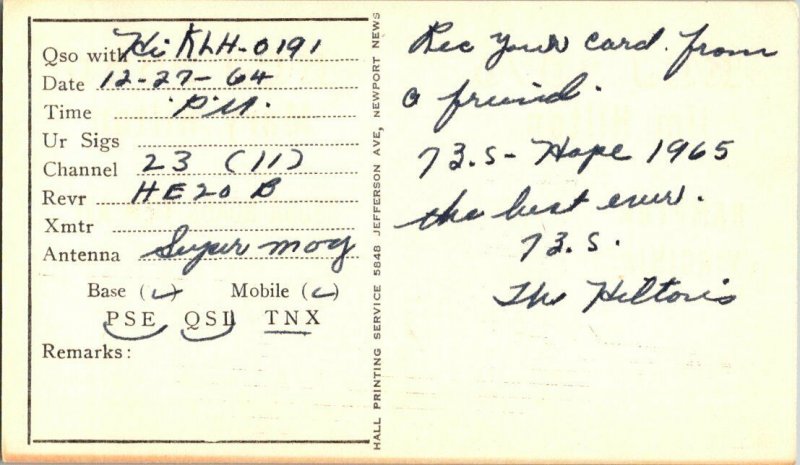 Qso with Hi KLH-0191
Date 12-27-64
Time P.M.
Ur Sigs
Channel 23 (11)
Recvr HE20 B
Xmtr
Antenna Super mag
Base (✓) Mobile (✓)
PSE QSL TNX
Remarks:
HALL PRINTING SERVICE 5848 JEFFERSON AVE, NEWPORT NEWS
Rec your card. from
a freind.
73.S- Hope 1965
the best ever.
73.S.
The Hilton's